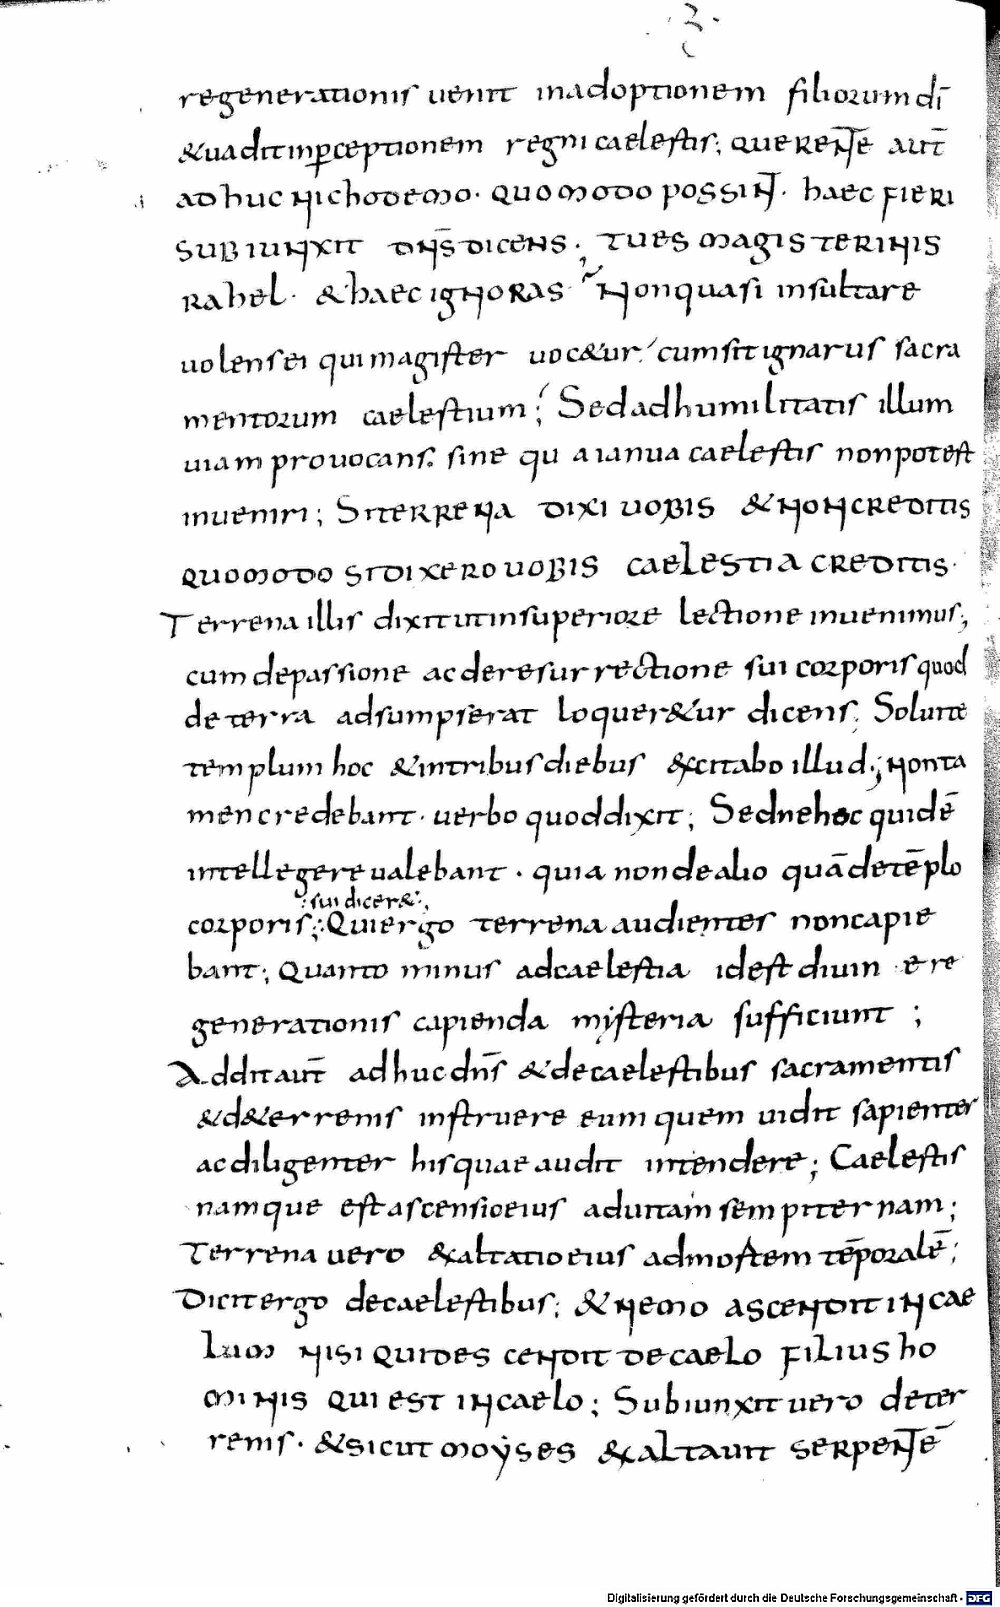 3.
regenerationis uenit inadoptionem filiorum dī
&uadit inꝑceptionem regni caelestis; querentē aut̄
adhuc nichodemo· quomodo possint· haec fieri
subiunxit dn̄s dicens; tues magister inis
rahel· & haec ignoras· Nonquasi insultare
uolens ei qui magister uoc&ur· cum sit ignarus sacra
mentorum caelestium; Sed adhumilitatis illum
uiam prouocans· sine qu a ianua caelestis nonpotest
inueniri; Siterrena dixi uobis & non creditis
quomodo sidixero uobis caelestia creditis·
Terrena illis dixit utinsuperiore lectione inuenimus;
cum depassione ac deresurrectione sui corporis quod
deterra adsumpserat loquer&ur dicens; Soluite
templum hoc & intribus diebus excitabo illud; nonta
men credebant· uerbo quod dixit; Sed nehoc quidē
intellegere ualebant· quia non dealio quā detēplo
sui dicer&
corporis; Qui ergo terrena audientes noncapie
bant; quanto minus adcaelestia idest diuin e re
generationis capienda mysteria sufficiunt ;
Addit aut̄ adhuc dn̄s & decaelestibus sacramentis
& d&errenis instruere eum quem uidit sapienter
ac diligenter his quae audit intendere; Caelestis
namque est ascensio eius aduitam sempiternam;
Terrena uero exaltatio eius admortem tēporalē;
Dicit ergo decaelestibus; & nemo ascendit in cae
lum nisi qui descendit decaelo filius ho
minis qui est in caelo; Subiunxit uero deter
renis· & sicut moyses exaltauit serpentē
Digitalisierung gefördert durch die Deutsche Forschungsgemeinschaft - DFG